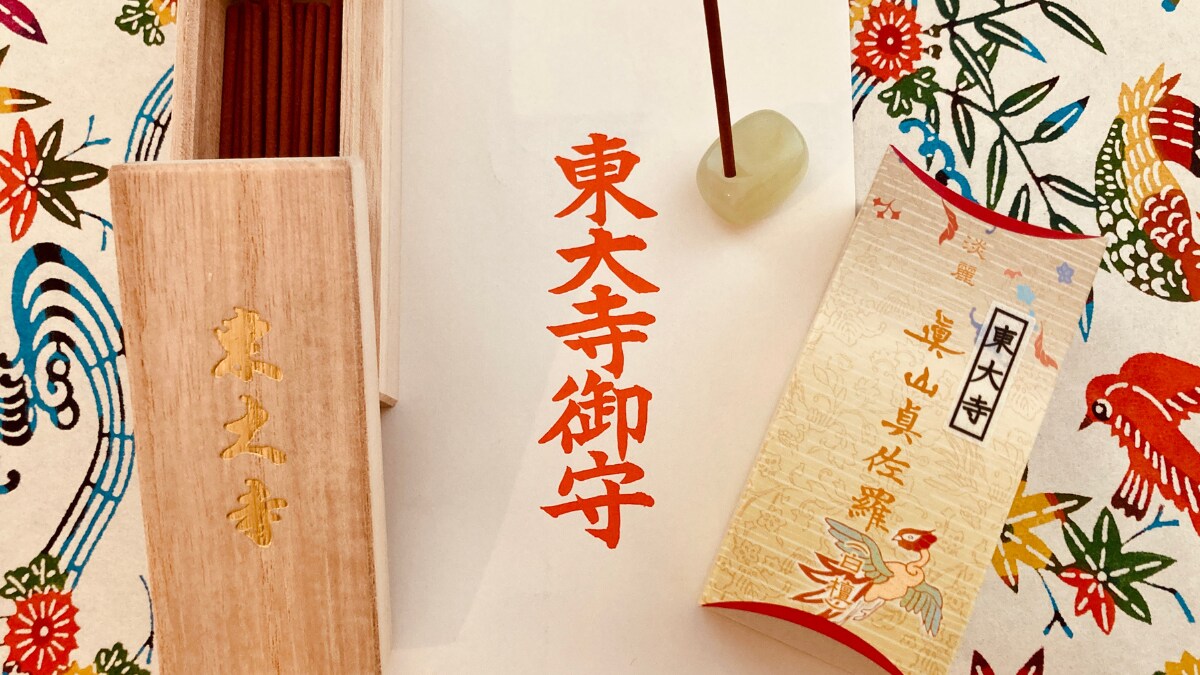 東大寺
東大寺御守
淡麗
東大寺
眞山真佐羅
白檀